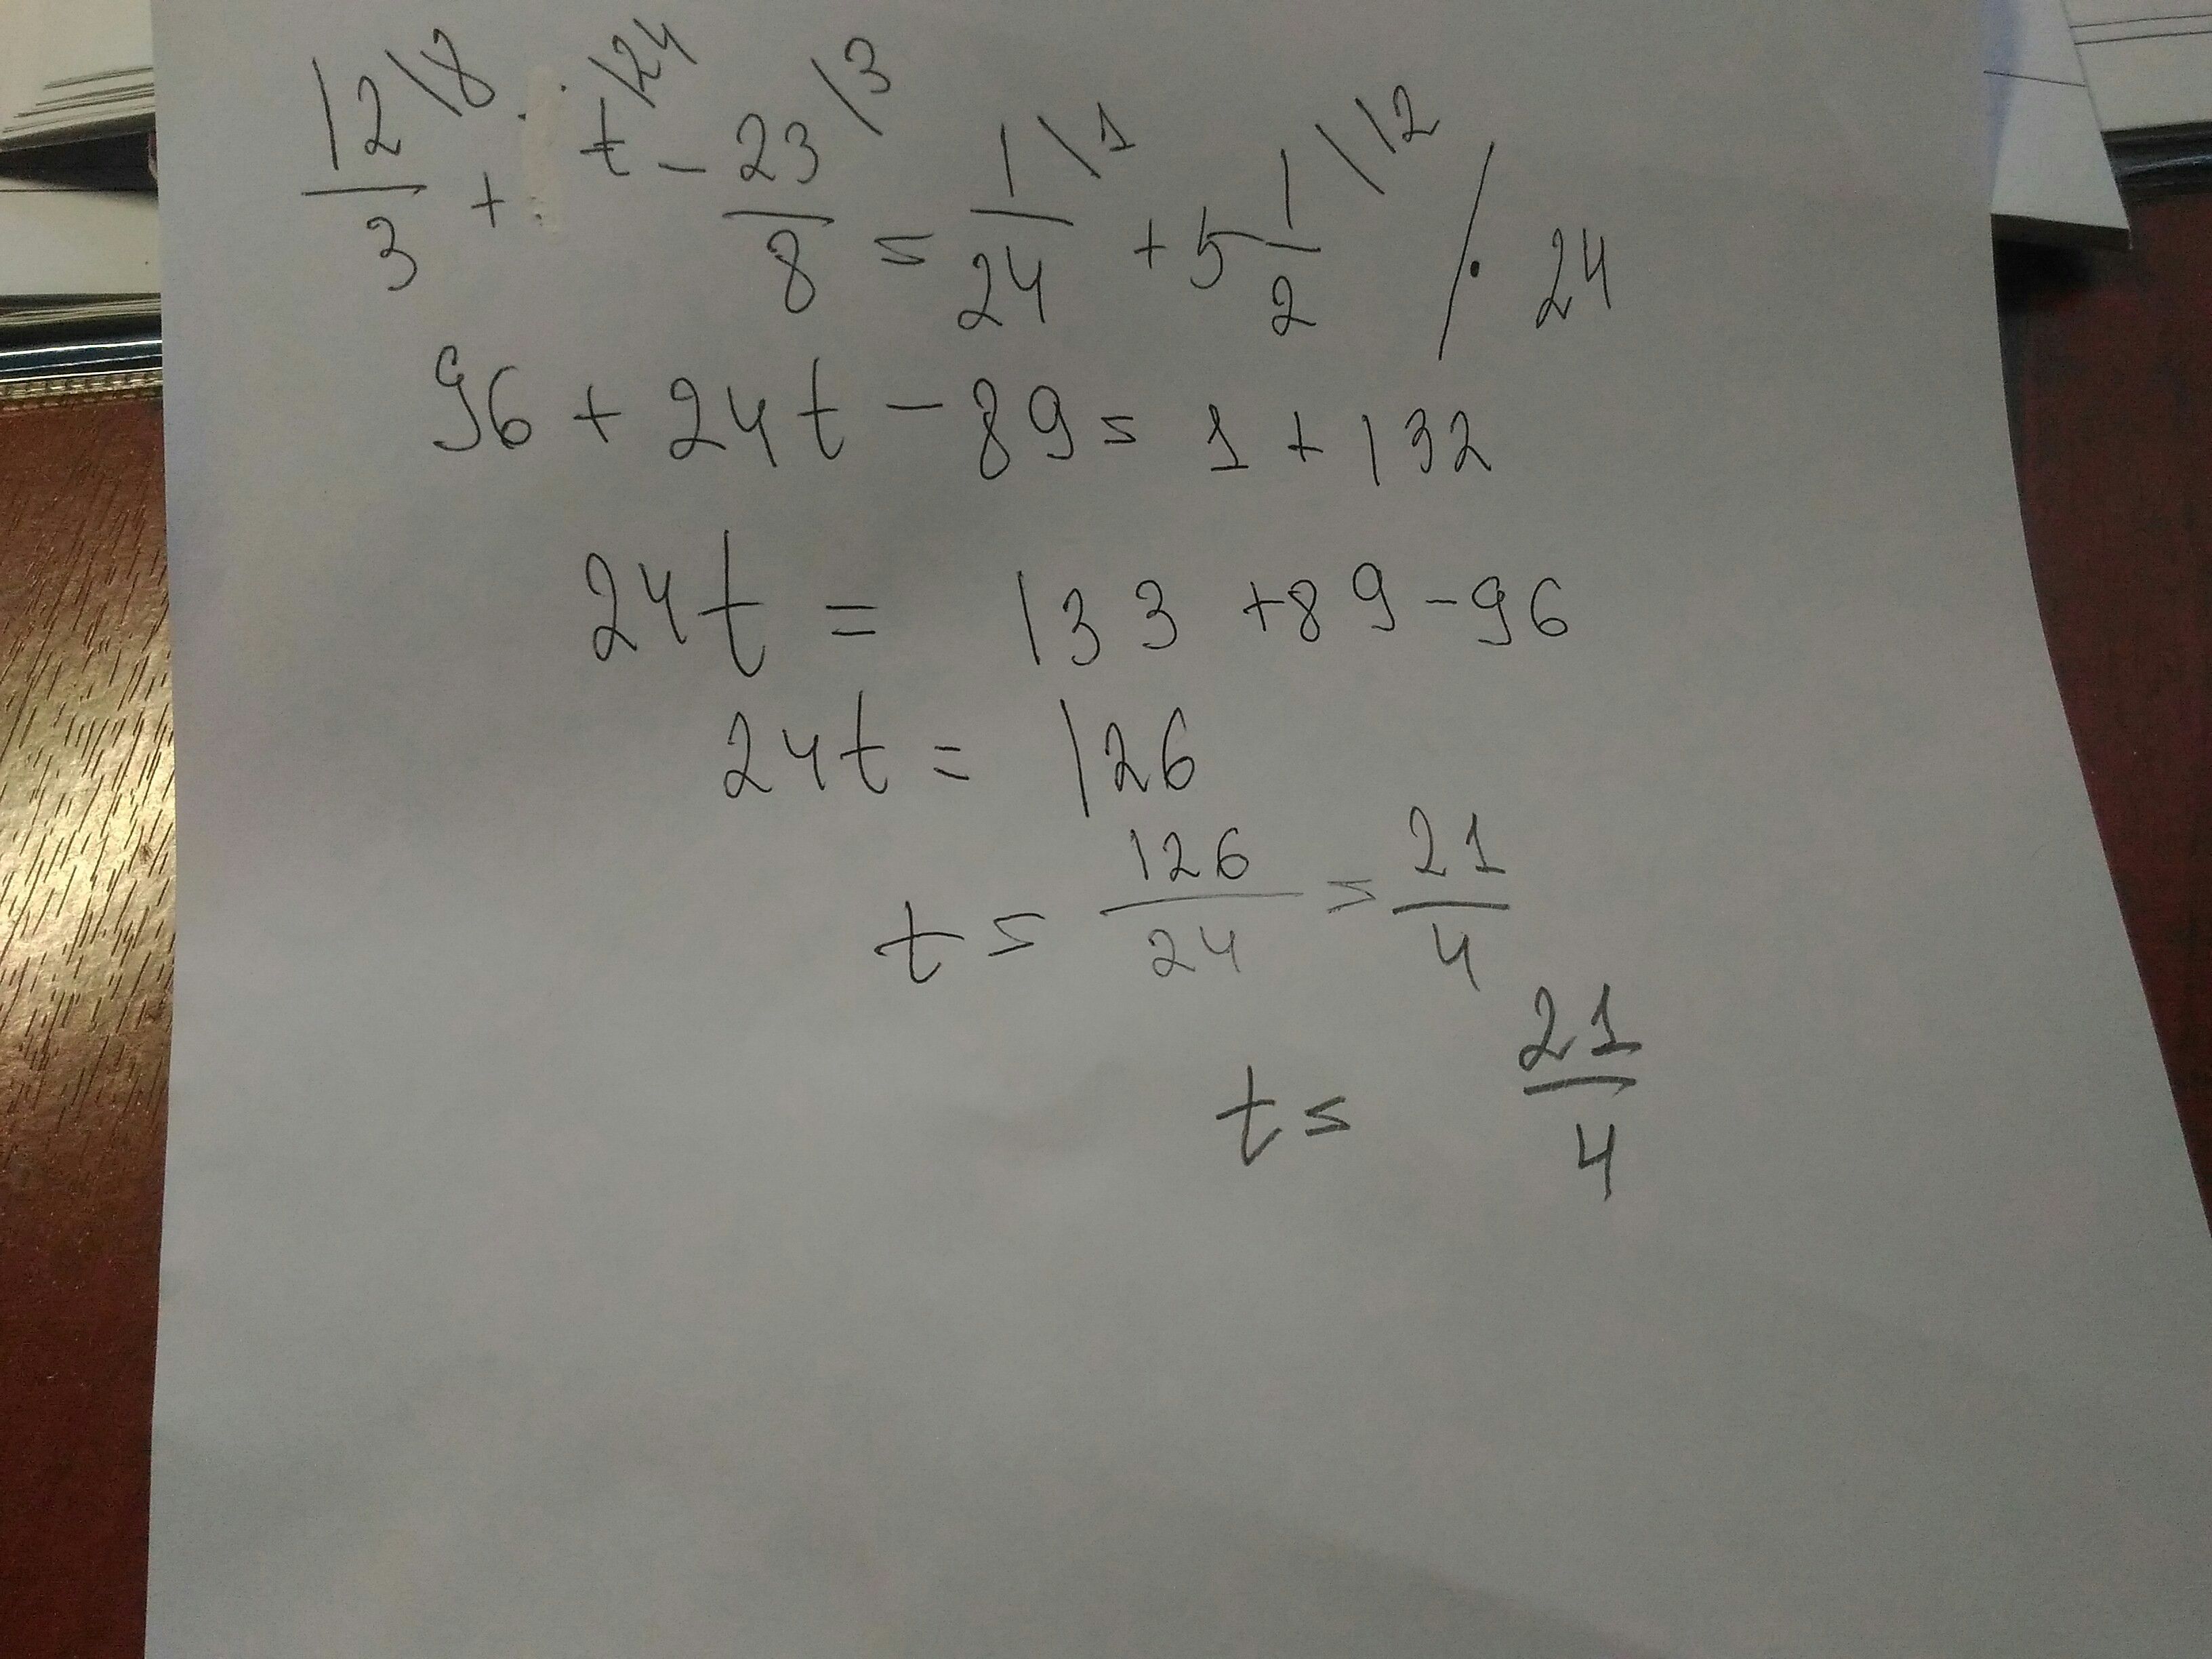 12\8/3 + t\24 - 23\3/8 = 1\1/24 + 5 1\12/2 / · 24
96 + 24t - 89 = 1 + 132
24t = 133 + 89 - 96
24t = 126
t = 126/24 = 21/4
t = 21/4